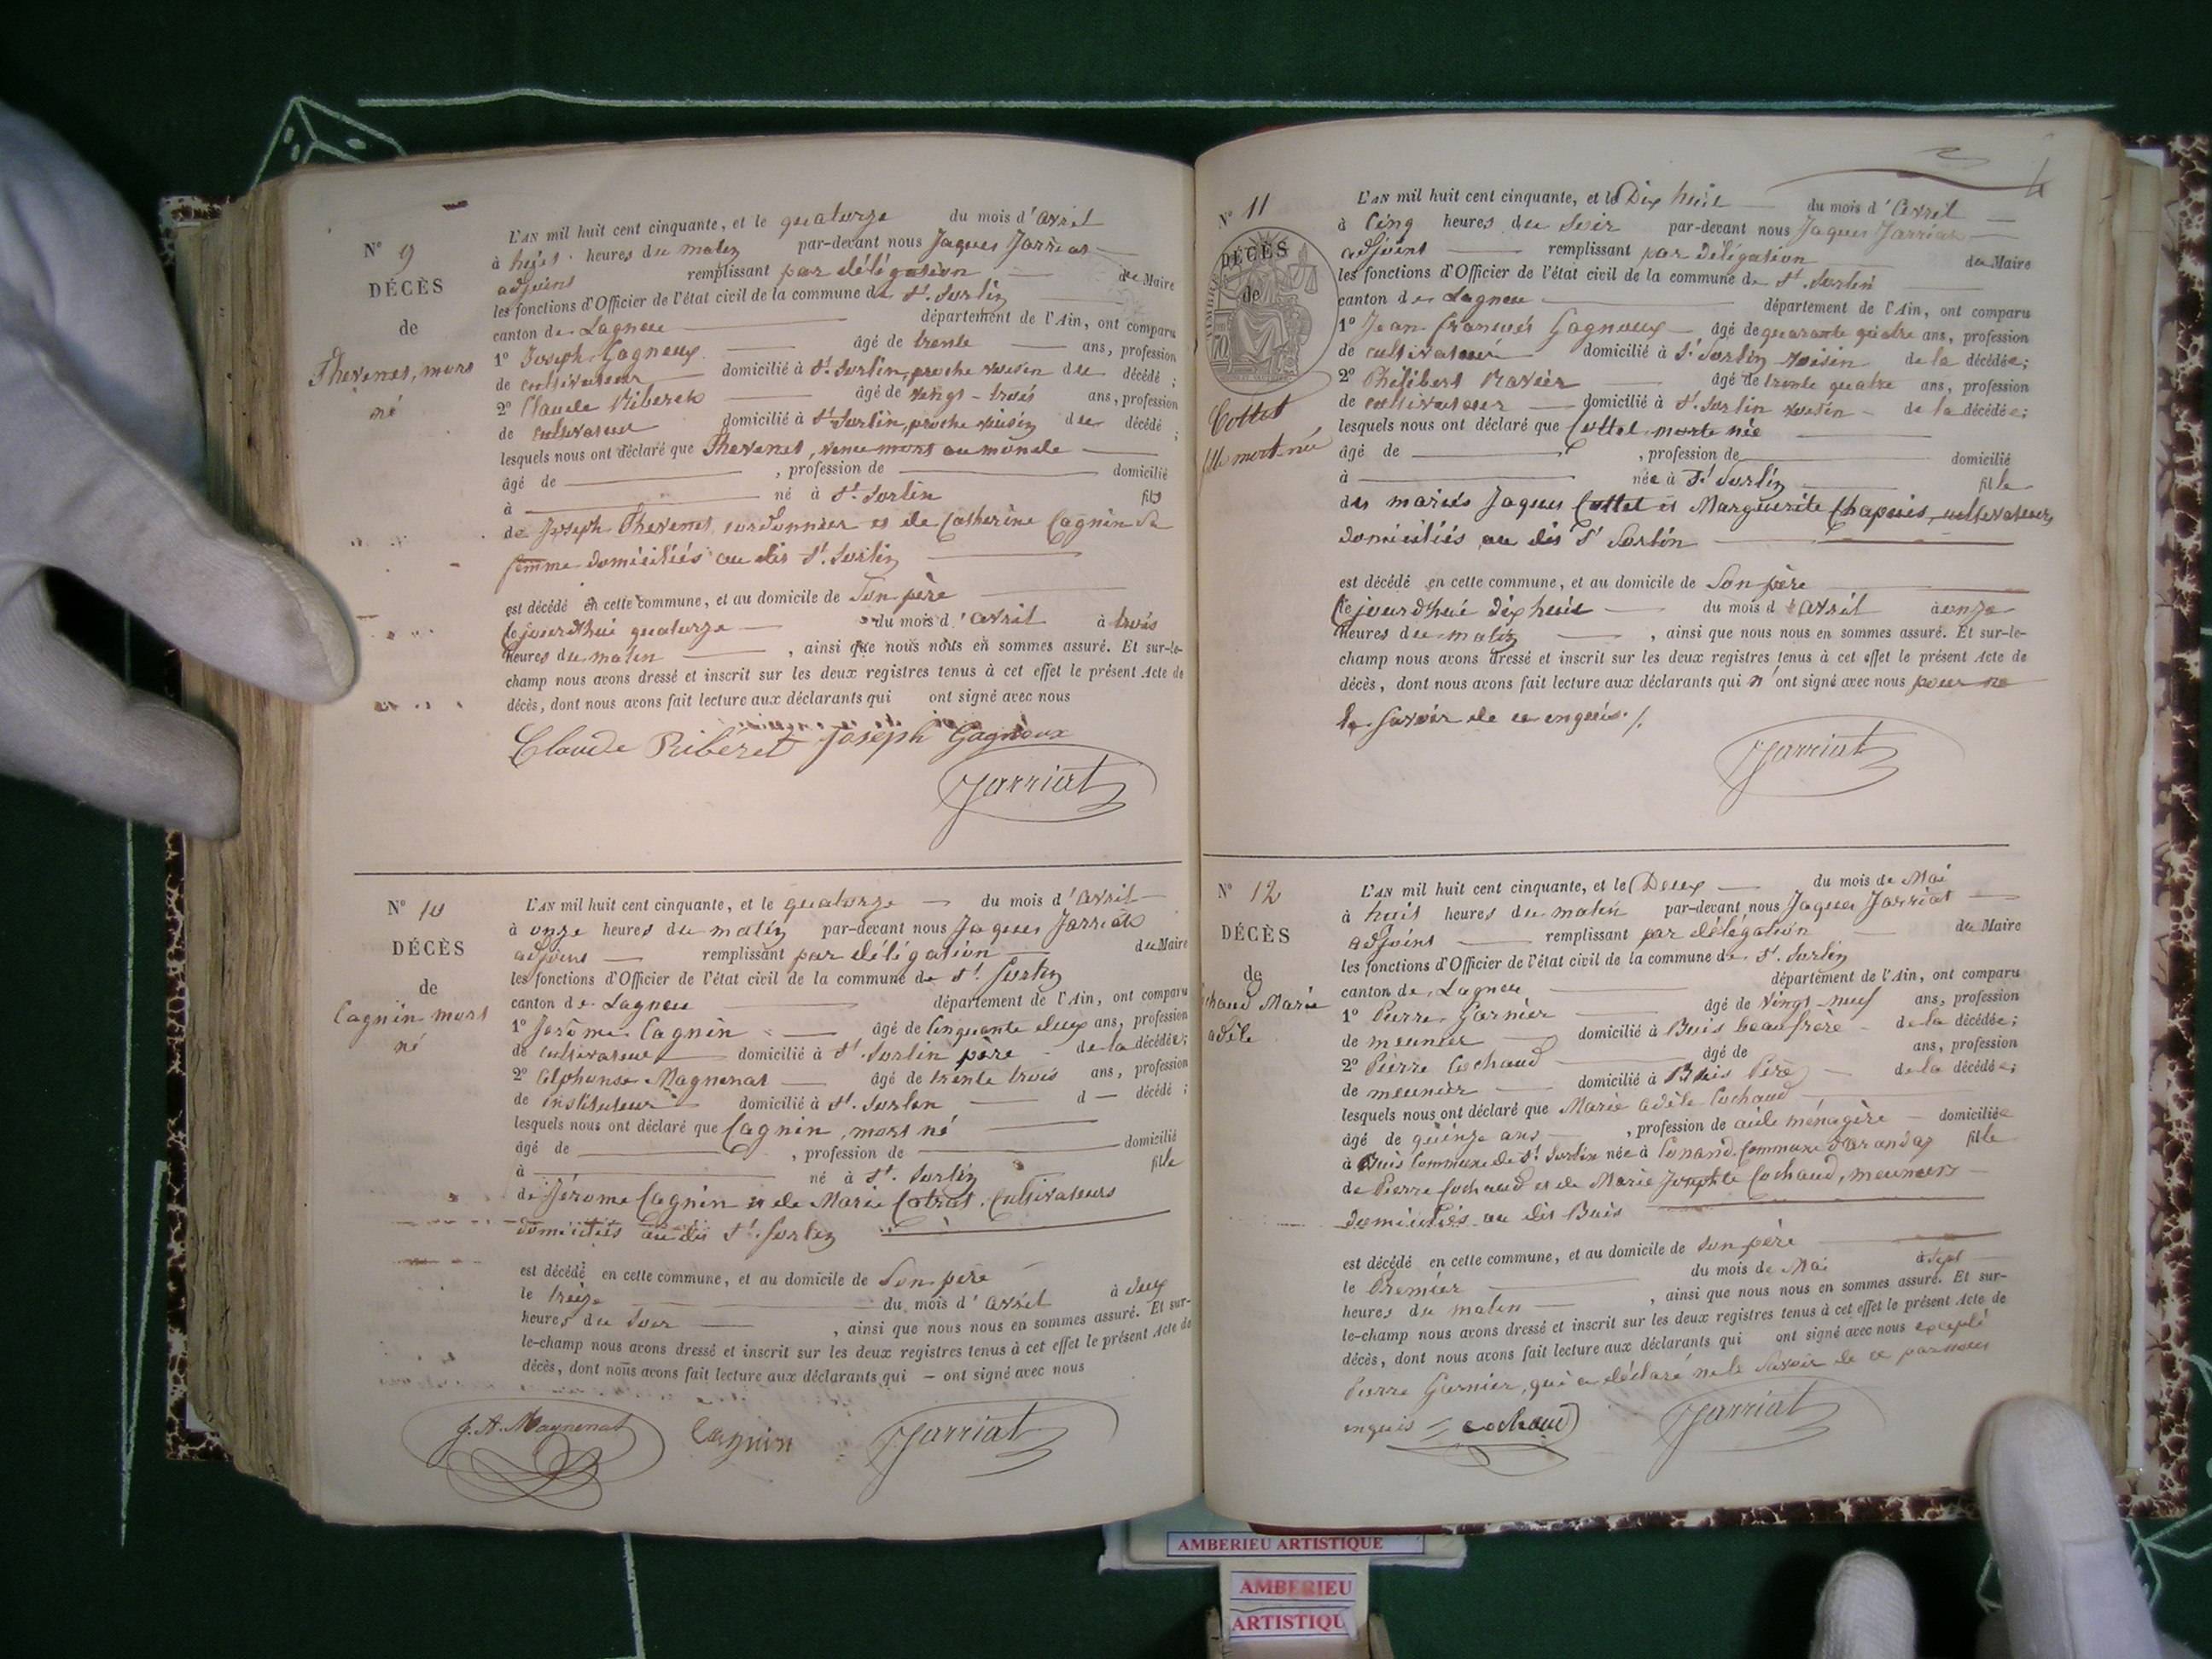 N° 9
DÉCÈS
de
Thevenet, mort
né
L'AN mil huit cent cinquante, et le quatorze du mois d'avril
à huit heures du matin par-devant nous Jaques Jarriat
adjoint remplissant par délégation du Maire
les fonctions d'Officier de l'état civil de la commune de St. Sorlin
canton de Lagneu département de l'Ain, ont comparu
1° Joseph Gagneux âgé de trente ans, profession
de cultivateur domicilié à St. Sorlin, proche voisin du décédé ;
2° Claude Riberet âgé de vingt-trois ans, profession
de cultivateur domicilié à St Sorlin, proche voisin du décédé ;
lesquels nous ont déclaré que Thevenet, venu mort au monde
âgé de , profession de domicilié
à né à St. Sorlin fils
de Joseph Thevenet, cordonnier et de Catherine Cagnin sa
femme domiciliés au dit St. Sorlin
est décédé en cette commune, et au domicile de Son père
Cejourd'hui quatorze du mois d'avril à trois
heures du matin , ainsi que nous nous en sommes assuré. Et sur-le-
champ nous avons dressé et inscrit sur les deux registres tenus à cet effet le présent Acte de
décès, dont nous avons fait lecture aux déclarants qui ont signé avec nous
Claude Riberet Joseph Gagneux
Jarriat
N° 10
DÉCÈS
de
Cagnin mort
né
L'AN mil huit cent cinquante, et le quatorze du mois d'avril
à onze heures du matin par-devant nous Jaques Jarriat
adjoint remplissant par délégation du Maire
les fonctions d'Officier de l'état civil de la commune de St. Sorlin
canton de Lagneu département de l'Ain, ont comparu
1° Jérôme Cagnin âgé de Cinquante deux ans, profession
de cultivateur domicilié à St. Sorlin père de la décédée;
2° Alphonse Magnenat âgé de trente trois ans, profession
de instituteur domicilié à St. Sorlin d — décédé ;
lesquels nous ont déclaré que Cagnin, mort né
âgé de , profession de domicilié
à né à St. Sorlin fille
de Jérome Cagnin et de Marie Cotrat, Cultivateurs
domiciliés au dit St. Sorlin
est décédé en cette commune, et au domicile de Son père
le treize du mois d'avril à deux
heures du Soir , ainsi que nous nous en sommes assuré. Et sur-
le-champ nous avons dressé et inscrit sur les deux registres tenus à cet effet le présent Acte de
décès, dont nous avons fait lecture aux déclarants qui — ont signé avec nous
J. A. Magnenat Cagnin Jarriat
N° 11
DÉCÈS
de
Cottet
fille mort-née
L'AN mil huit cent cinquante, et le Dix huit du mois d'Avril
à Cinq heures du Soir par-devant nous Jaques Jarriat
adjoint remplissant par délégation du Maire
les fonctions d'Officier de l'état civil de la commune de St. Sorlin
canton de Lagneu département de l'Ain, ont comparu
1° Jean François Gagneux âgé de quarante quatre ans, profession
de cultivateur domicilié à St Sorlin voisin de la décédée;
2° Philibert Ravier âgé de trente quatre ans, profession
de cultivateur domicilié à St. Sorlin voisin de la décédée;
lesquels nous ont déclaré que Cottet morte née
âgé de , profession de domicilié
à née à St Sorlin fille
des mariés Jaques Cottet et Marguerite Chapuis, cultivateurs
domiciliés au dit St Sorlin
est décédé en cette commune, et au domicile de Son père
Cejourd'hui dix huit du mois d'avril à onze
heures du matin , ainsi que nous nous en sommes assuré. Et sur-le-
champ nous avons dressé et inscrit sur les deux registres tenus à cet effet le présent Acte de
décès, dont nous avons fait lecture aux déclarants qui n'ont signé avec nous pour ne
le savoir de ce enquis ./.
Jarriat
N° 12
DÉCÈS
de
Cochaud Marie
adèle
L'AN mil huit cent cinquante, et le Deux du mois de Mai
à huit heures du matin par-devant nous Jaques Jarriat
adjoint remplissant par délégation du Maire
les fonctions d'Officier de l'état civil de la commune de St. Sorlin
canton de Lagneu département de l'Ain, ont comparu
1° Pierre Garnier âgé de vingt-neuf ans, profession
de meunier domicilié à Buis beaufrère de la décédée;
2° Pierre Cochaud âgé de ans, profession
de meunier domicilié à Buis Père de la décédée;
lesquels nous ont déclaré que Marie adèle Cochaud
âgé de quinze ans , profession de aide ménagère domiciliée
à Buis Commune de St Sorlin née à Conand Commune d'arandas fille
de Pierre Cochaud et de Marie Josephte Cochaud, meuniers
domiciliés au dit Buis
est décédé en cette commune, et au domicile de Son père
le Premier du mois de Mai à sept
heures du matin , ainsi que nous nous en sommes assuré. Et sur-
le-champ nous avons dressé et inscrit sur les deux registres tenus à cet effet le présent Acte de
décès, dont nous avons fait lecture aux déclarants qui ont signé avec nous excepté
Pierre Garnier, qui a déclaré ne le Savoir de ce par nous
enquis = Cochaud Jarriat
AMBERIEU ARTISTIQUE
AMBERIEU
ARTISTIQU